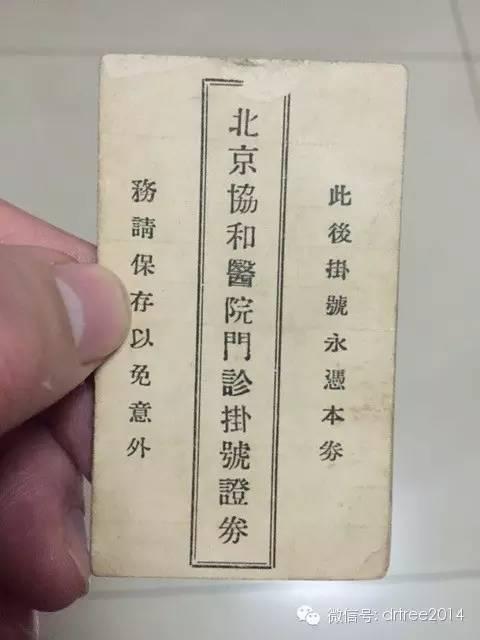 此後掛號永憑本劵
北京協和醫院門診掛號證劵
務請保存以免意外
微信号: drtree2014